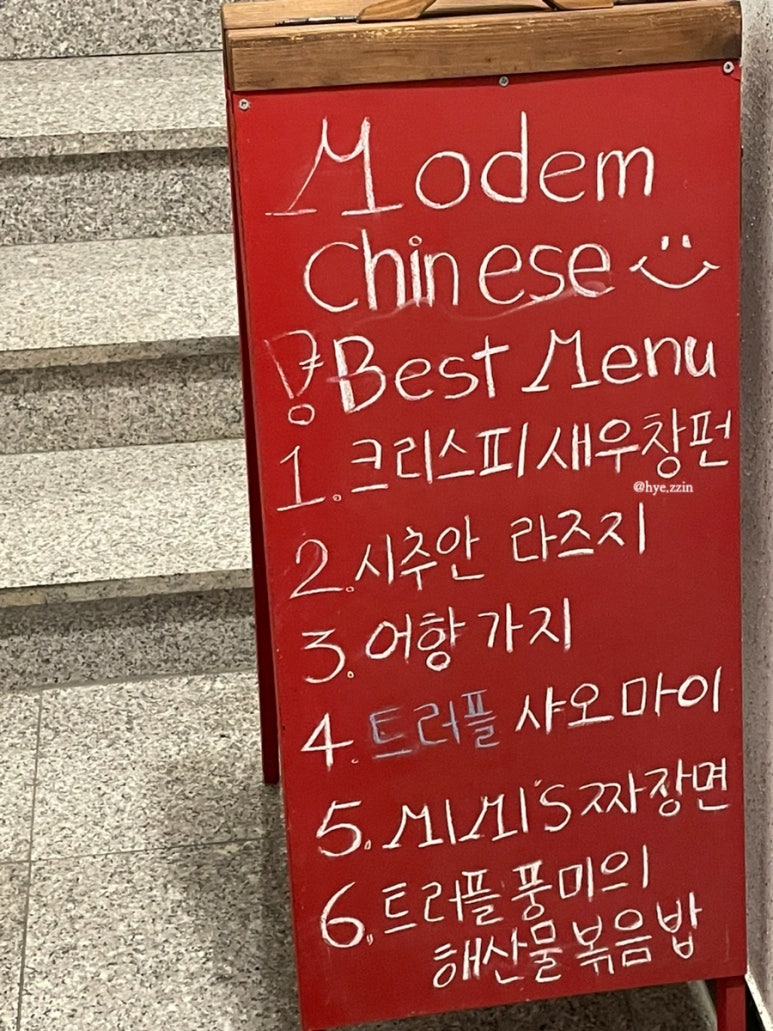 Modern
Chinese
Best Menu
1. 크리스피 새우창펀
@hye.zzin
2. 시추안 라즈지
3. 어향 가지
4. 트러플 샤오마이
5. MIMI'S 짜장면
6. 트러플 풍미의
해산물 볶음밥